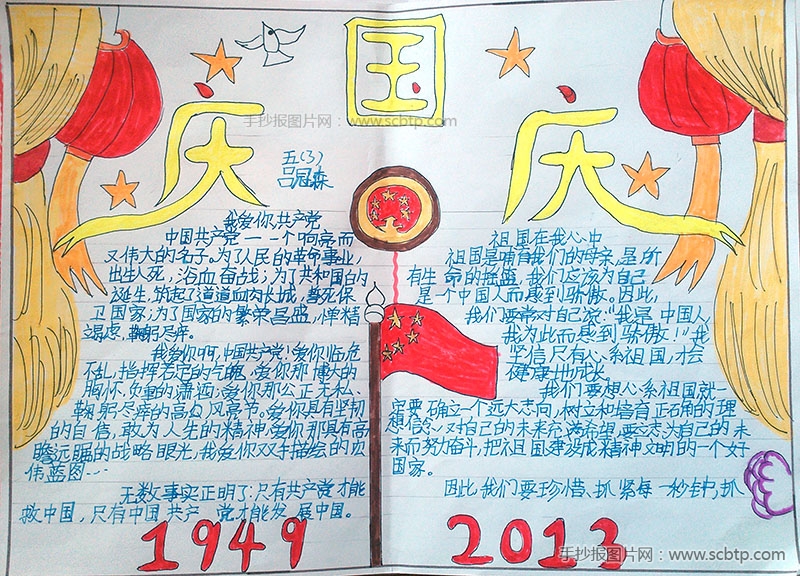 国
庆
庆
手抄报图片网：www.scbtp.com
五(3)
吕冠森
我爱你共产党
中国共产党一一个响亮而
又伟大的名子。为了人民的革命事业,
出生入死，浴血奋战；为了共和国的
诞生，筑起了道道血肉长城，誓死保
卫国家；为了国家的繁荣昌盛，惮精
竭虑，鞠躬尽瘁。
我爱你啊，中国共产党！爱你临危
不乱，指挥若定的气魄，爱你那博大的
胸怀，负重的潇洒；爱你那公正无私、
鞠躬尽瘁的高尚风高节。爱你具有坚韧
的自信，敢为人先的精神，爱你那具有高
瞻远瞩的战略眼光。我爱你双手描绘的
伟蓝图…
无数事实正明了：只有共产党才能
救中国，只有中国共产党才能发展中国。
1949
祖国在我心中
祖国是哺育我们的母亲，是所
有生命的摇篮，我们应该为自己
是一个中国人而感到骄傲。因此，
我们要常对自己说：“我是中国人
我为此而感到骄傲！”我
坚信只有心系祖国，才会
健康地成长
我们要想心系祖国就一
定要确立个远大志向，树立和培育正确的理
想信念，对自己的未来充满希望，要为自己的未
来而努力奋斗，把祖国建设成精神文明的一个好
国家。
因此，我们要珍惜、抓紧每一秒钟，抓
2013
手抄报图片网：www.scbtp.com